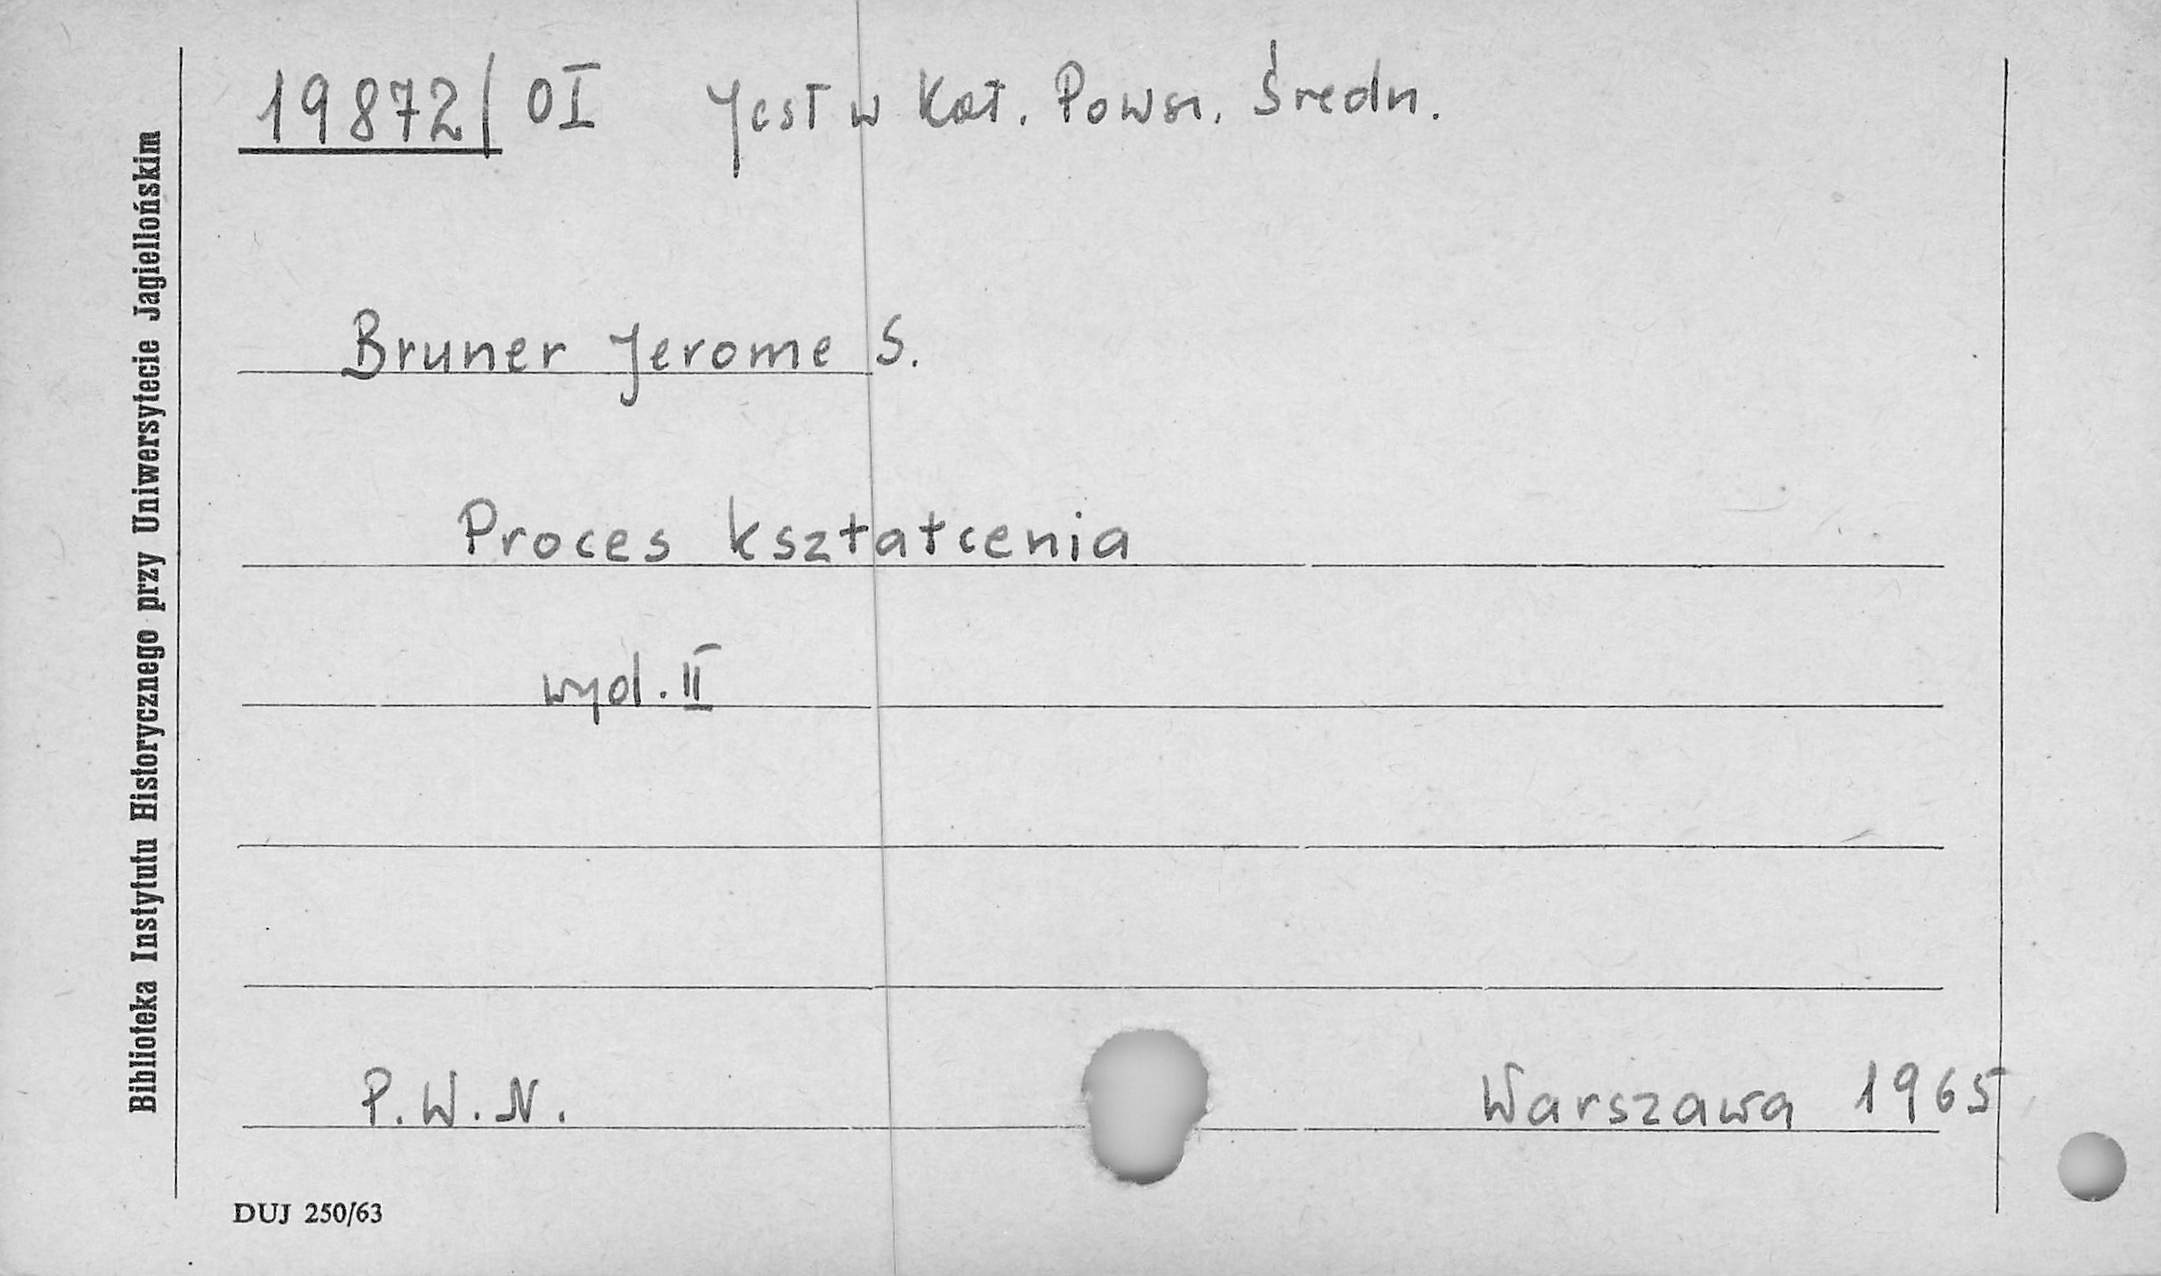 19872/ OI Jest w Kat. Powsz. Średn.
Bruner Jerome S.
Proces kształcenia
wyd. II
P.W.N. Warszawa 1965
DUJ 250/63
Biblioteka Instytutu Historycznego przy Uniwersytecie Jagiellońskim